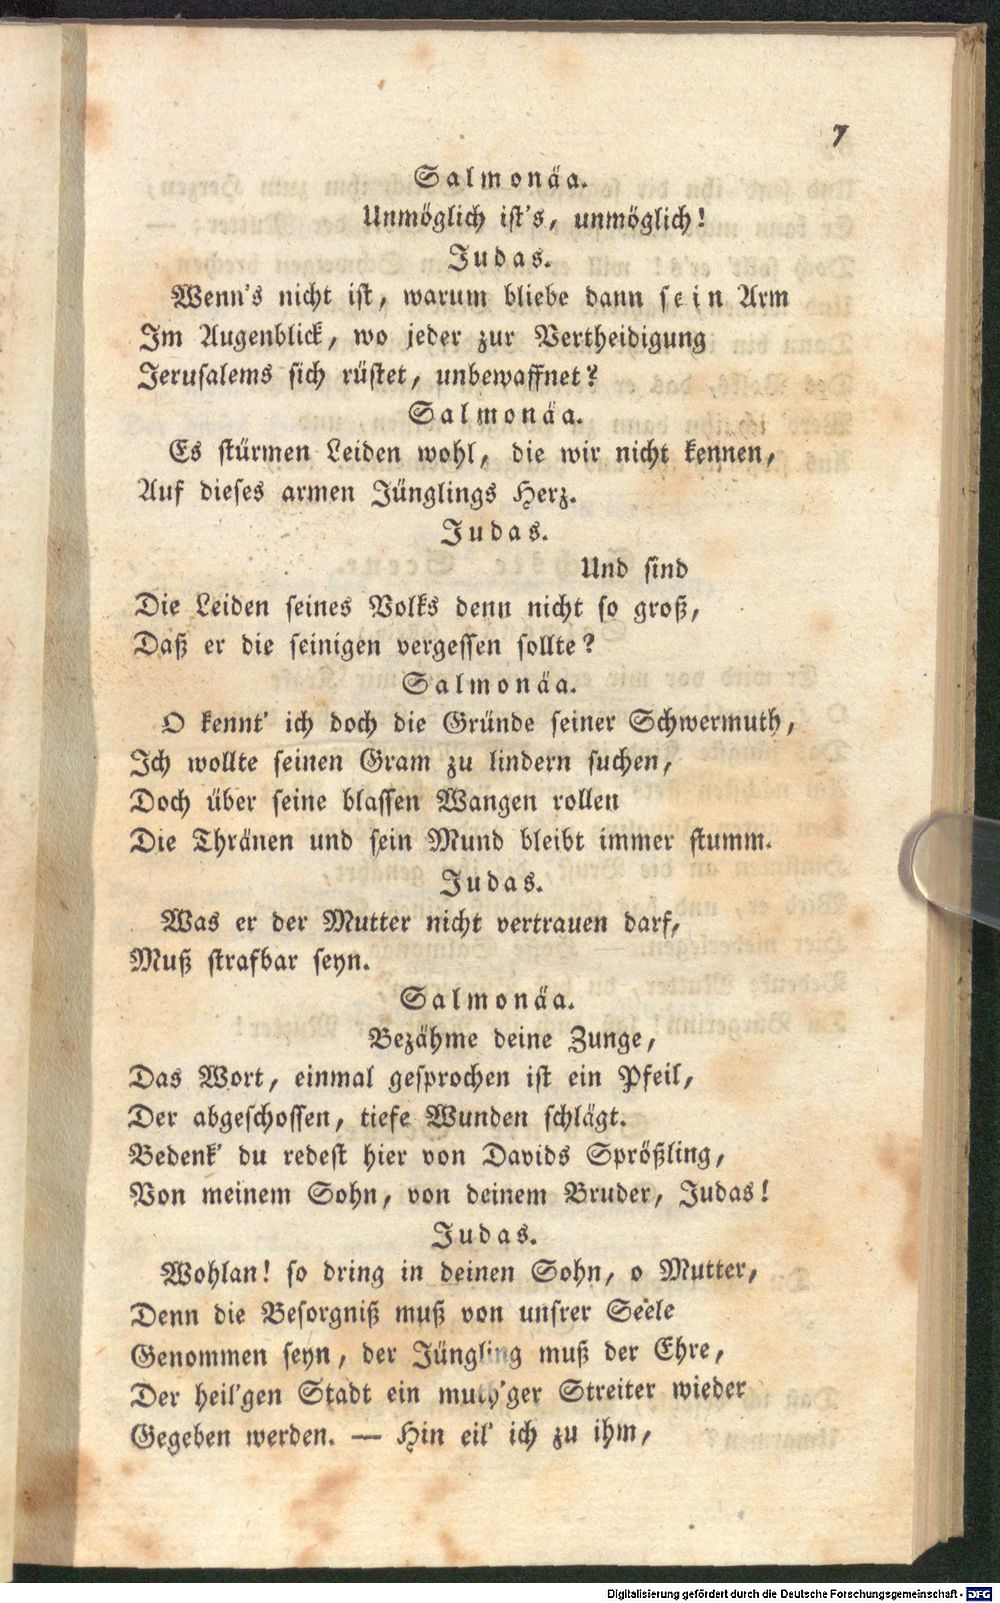 7
Salmonäa.
Unmöglich ist's, unmöglich!
Judas.
Wenn's nicht ist, warum bliebe dann sein Arm
Im Augenblick, wo jeder zur Vertheidigung
Jerusalems sich rüstet, unbewaffnet?
Salmonäa.
Es stürmen Leiden wohl, die wir nicht kennen,
Auf dieses armen Jünglings Herz.
Judas.
Und sind
Die Leiden seines Volks denn nicht so groß,
Daß er die seinigen vergessen sollte?
Salmonäa.
O kennt' ich doch die Gründe seiner Schwermuth,
Ich wollte seinen Gram zu lindern suchen,
Doch über seine blassen Wangen rollen
Die Thränen und sein Mund bleibt immer stumm.
Judas.
Was er der Mutter nicht vertrauen darf,
Muß strafbar seyn.
Salmonäa.
Bezähme deine Zunge,
Das Wort, einmal gesprochen ist ein Pfeil,
Der abgeschossen, tiefe Wunden schlägt.
Bedenk' du redest hier von Davids Sprößling,
Von meinem Sohn, von deinem Bruder, Judas!
Judas.
Wohlan! so dring in deinen Sohn, o Mutter,
Denn die Besorgniß muß von unsrer Seele
Genommen seyn, der Jüngling muß der Ehre,
Der heil'gen Stadt ein muth'ger Streiter wieder
Gegeben werden. — Hin eil' ich zu ihm,
Digitalisierung gefördert durch die Deutsche Forschungsgemeinschaft - DFG